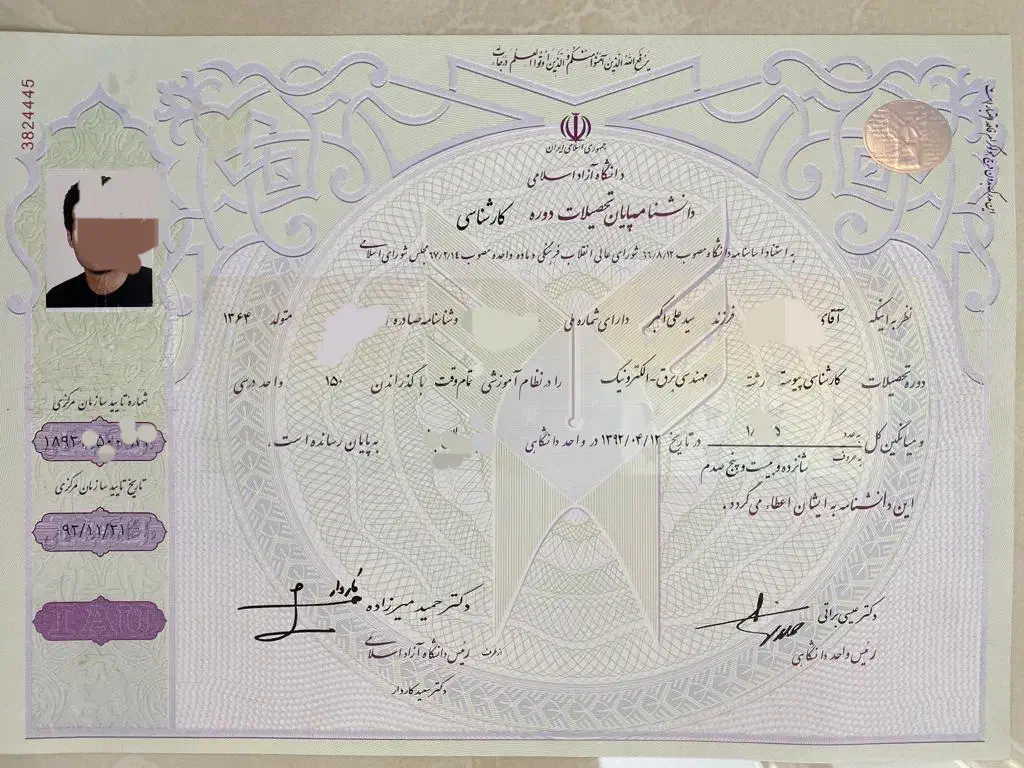 یرفع الله الذین آمنوا منکم و الذین اوتوا العلم درجات
3824445
جمهوری اسلامی ایران
دانشگاه آزاد اسلامی
دانشنامه پایان تحصیلات دوره کارشناسی
به استناد اساسنامه دانشگاه مصوب ۶۶/۸/۱۲ شورای عالی انقلاب فرهنگی و ماده واحده مصوب ۶۷/۲/۱۴ مجلس شورای اسلامی
نظر به اینکه آقای فرزند سیدعلی اکبر دارای شماره ملی و شناسنامه صادره متولد ۱۳۶۴
دوره تحصیلات کارشناسی پیوسته رشته مهندسی برق-الکترونیک را در نظام آموزشی تمام وقت با گذراندن ۱۵۰ واحد درسی
و میانگین کل به عدد در تاریخ ۱۳۹۲/۰۴/۱۲ در واحد دانشگاهی به پایان رسانده است.
به حروف شانزده و بیست و پنج صدم
این دانشنامه به ایشان اعطاء می گردد.
شماره تایید سازمان مرکزی
تاریخ تایید سازمان مرکزی
۹۲/۱۱/۲۱
IAU
دکتر عیسی براتی
رئیس واحد دانشگاهی
دکتر حمید میرزاده
از طرف رئیس دانشگاه آزاد اسلامی
دکتر سعید کاردار